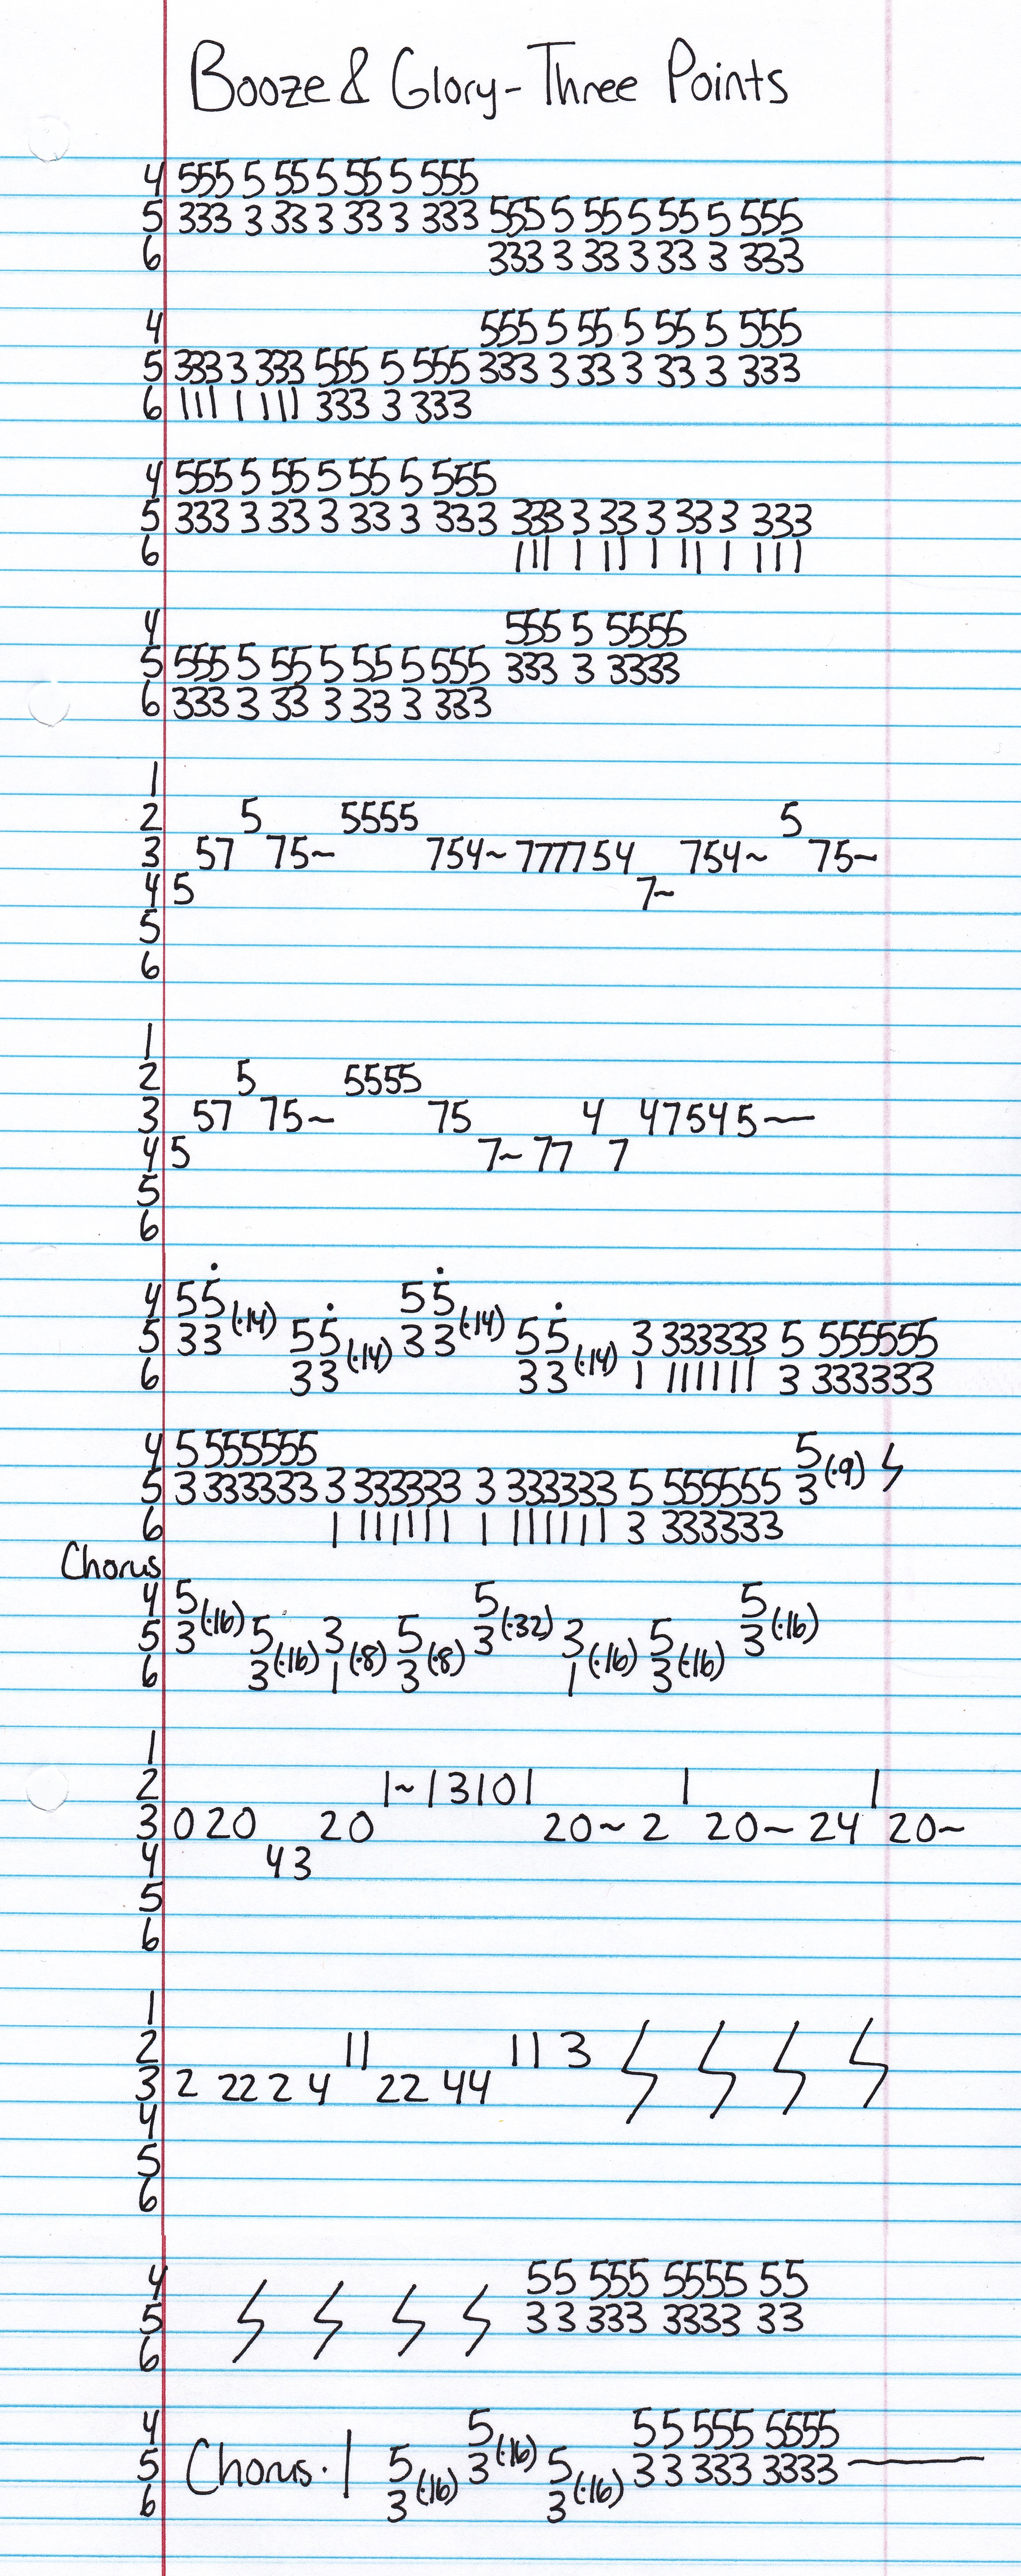 Booze & Glory - Three Points
4 555 5 55 5 55 5 555
5 333 3 33 3 33 3 333 555 5 55 5 55 5 555
6 333 3 33 3 33 3 333
4 555 5 55 5 55 5 555
5 333 3 333 555 5 555 333 3 33 3 33 3 333
6 111 1 111 333 3 333
4 555 5 55 5 55 5 555
5 333 3 33 3 33 3 333 333 3 33 3 33 3 333
6 111 1 11 1 11 1 111
4 555 5 5555
5 555 5 55 5 55 5 555 333 3 3333
6 333 3 33 3 33 3 333
1
2 5 5555 5
3 57 75~ 754~ 777754 754~ 75~
4 5 7~
5
6
1
2 5 5555
3 57 75~ 75 4 47545—
4 5 7~ 77 7
5
6
4 55̇ (·14) 55̇ (·14)
5 33 55̇ (·14) 33 55̇ (·14) 3 333333 5 555555
6 33 33 1 111111 3 333333
4 5 555555 5 (·9) ϟ
5 3 333333 3 333333 3 333333 5 555555 3
6 1 111111 1 111111 3 333333
Chorus
4 5 (·16) 5 (·32) 5 (·16)
5 3 5 (·16) 3 (·8) 5 (·8) 3 3 (·16) 5 (·16) 3
6 3 1 3 1 3
1
2 1~13101 1 1
3 0 20 20 20~ 2 20~ 24 20~
4 43
5
6
1
2 11 11 3 ϟ ϟ ϟ ϟ
3 2 22 2 4 22 44
4
5
6
4 55 555 5555 55
5 ϟ ϟ ϟ ϟ 33 333 3333 33
6
4 5 (·16) 55 555 5555
5 Chorus·| 5 (·16) 3 5 (·16) 33 333 3333 —
6 3 3